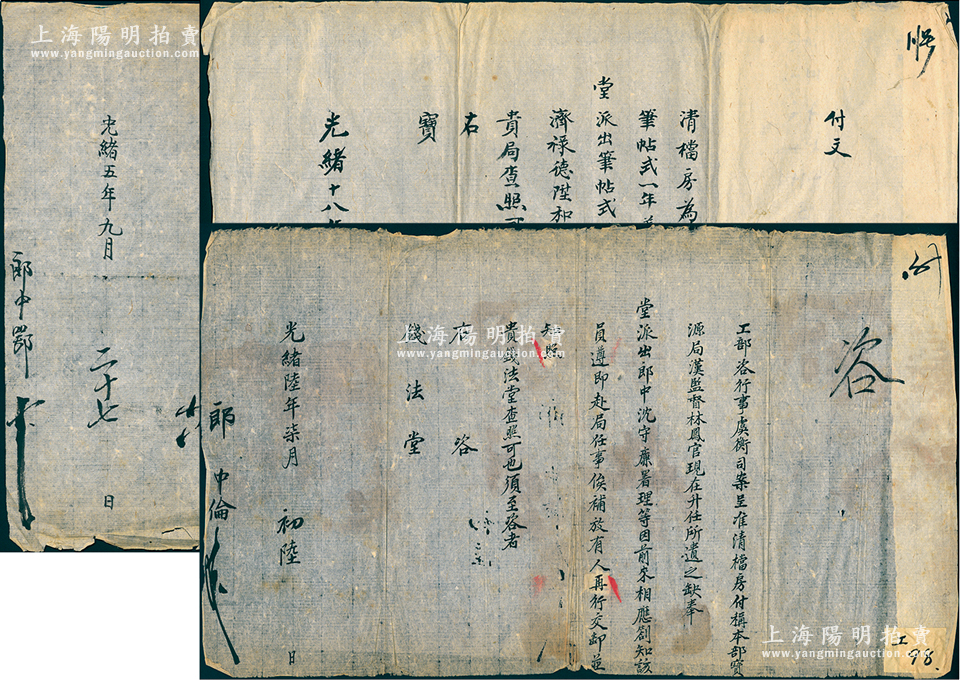 上海陽明拍賣
www.yangmingauction.com
光緒五年九月 二十七 日
郎中鄂
付文
清檔房為
筆帖式一年
堂派出筆帖式
濟祿德陞和
貴局查照可
右
寶
光緒十八
咨
工部咨行事虞衡司案呈准清檔房付稱本部寶
源局漢監督林鳳官現在升任所遺之缺奉
堂派出郎中沈守廉署理等因前來相應劄知該
員遵即赴局任事俟補放有人再行交卸並
知照
貴錢法堂查照可也須至咨者
右 咨
錢法堂
光緒陸年柒月 初陸 日
郎中倫
上海陽明拍賣
www.yangmingauction.com
上海陽明拍賣
www.yangmingauction.com
工
98.